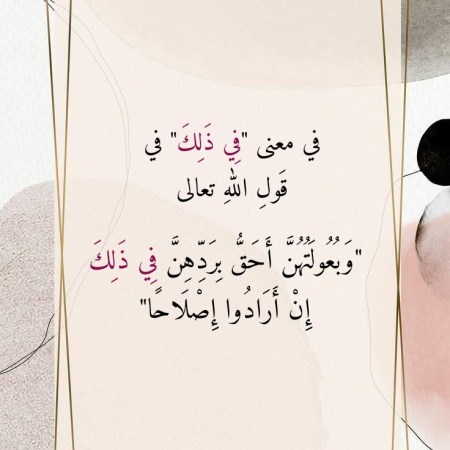 في معنى "فِي ذَلِكَ" في
قَولِ اللهِ تعالى
"وَبُعُولَتُهُنَّ أَحَقُّ بِرَدِّهِنَّ فِي ذَلِكَ
إِنْ أَرَادُوا إِصْلَاحًا"